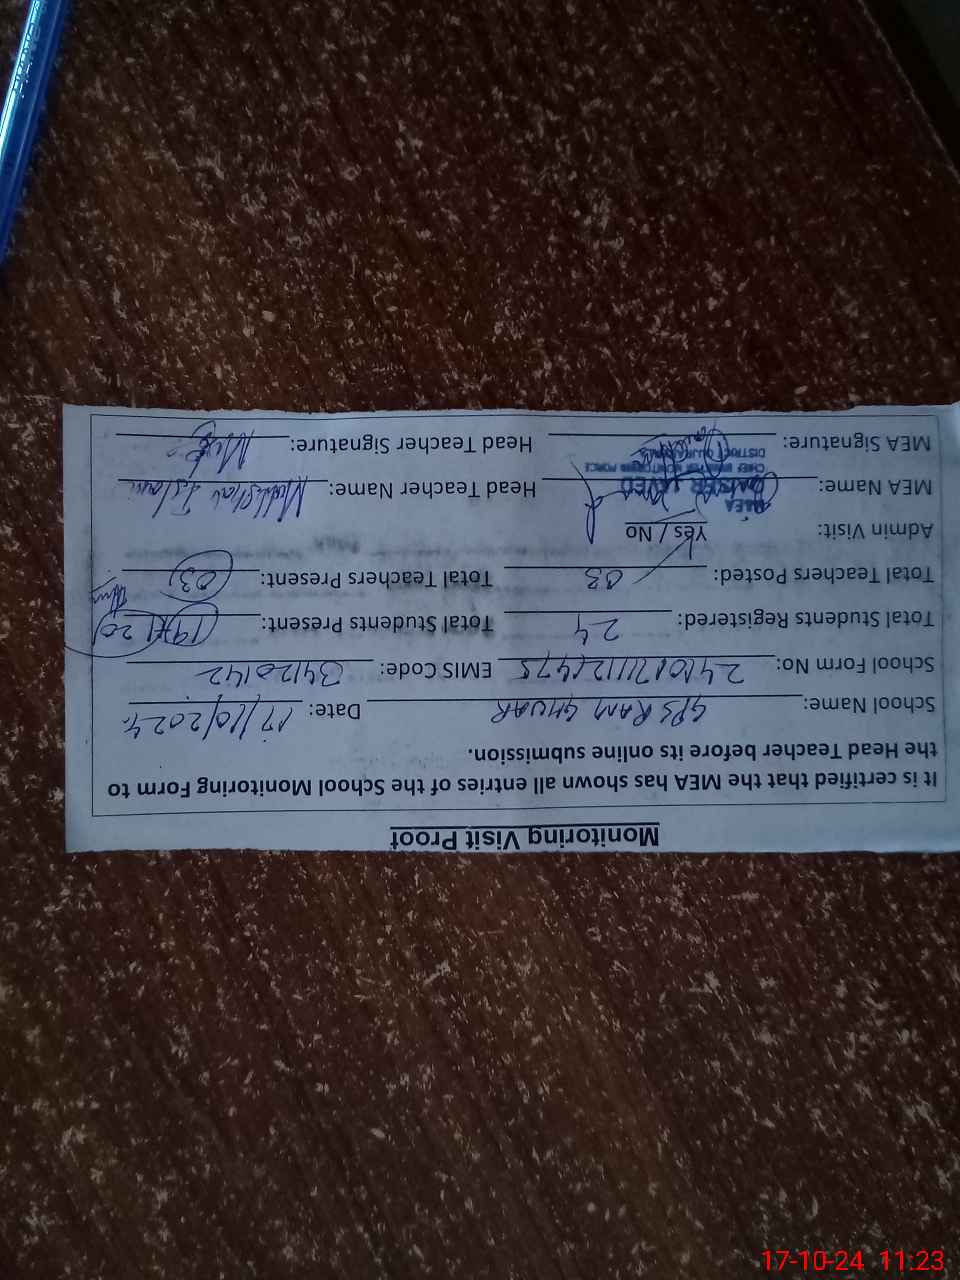 Monitoring Visit Proof
It is certified that the MEA has shown all entries of the School Monitoring Form to
the Head Teacher before its online submission.
School Name: GPS RAM GHUAR Date: 17/10/2024
School Form No: EMIS Code: 34120142
Total Students Registered: 24 Total Students Present: 20
Total Teachers Posted: 03 Total Teachers Present: 03
Admin Visit: Yes / No
MEA Name: Head Teacher Name:
MEA Signature: Head Teacher Signature:
MEA
CHIEF MINISTER MONITORING FORCE
DISTRICT
17-10-24 11:23